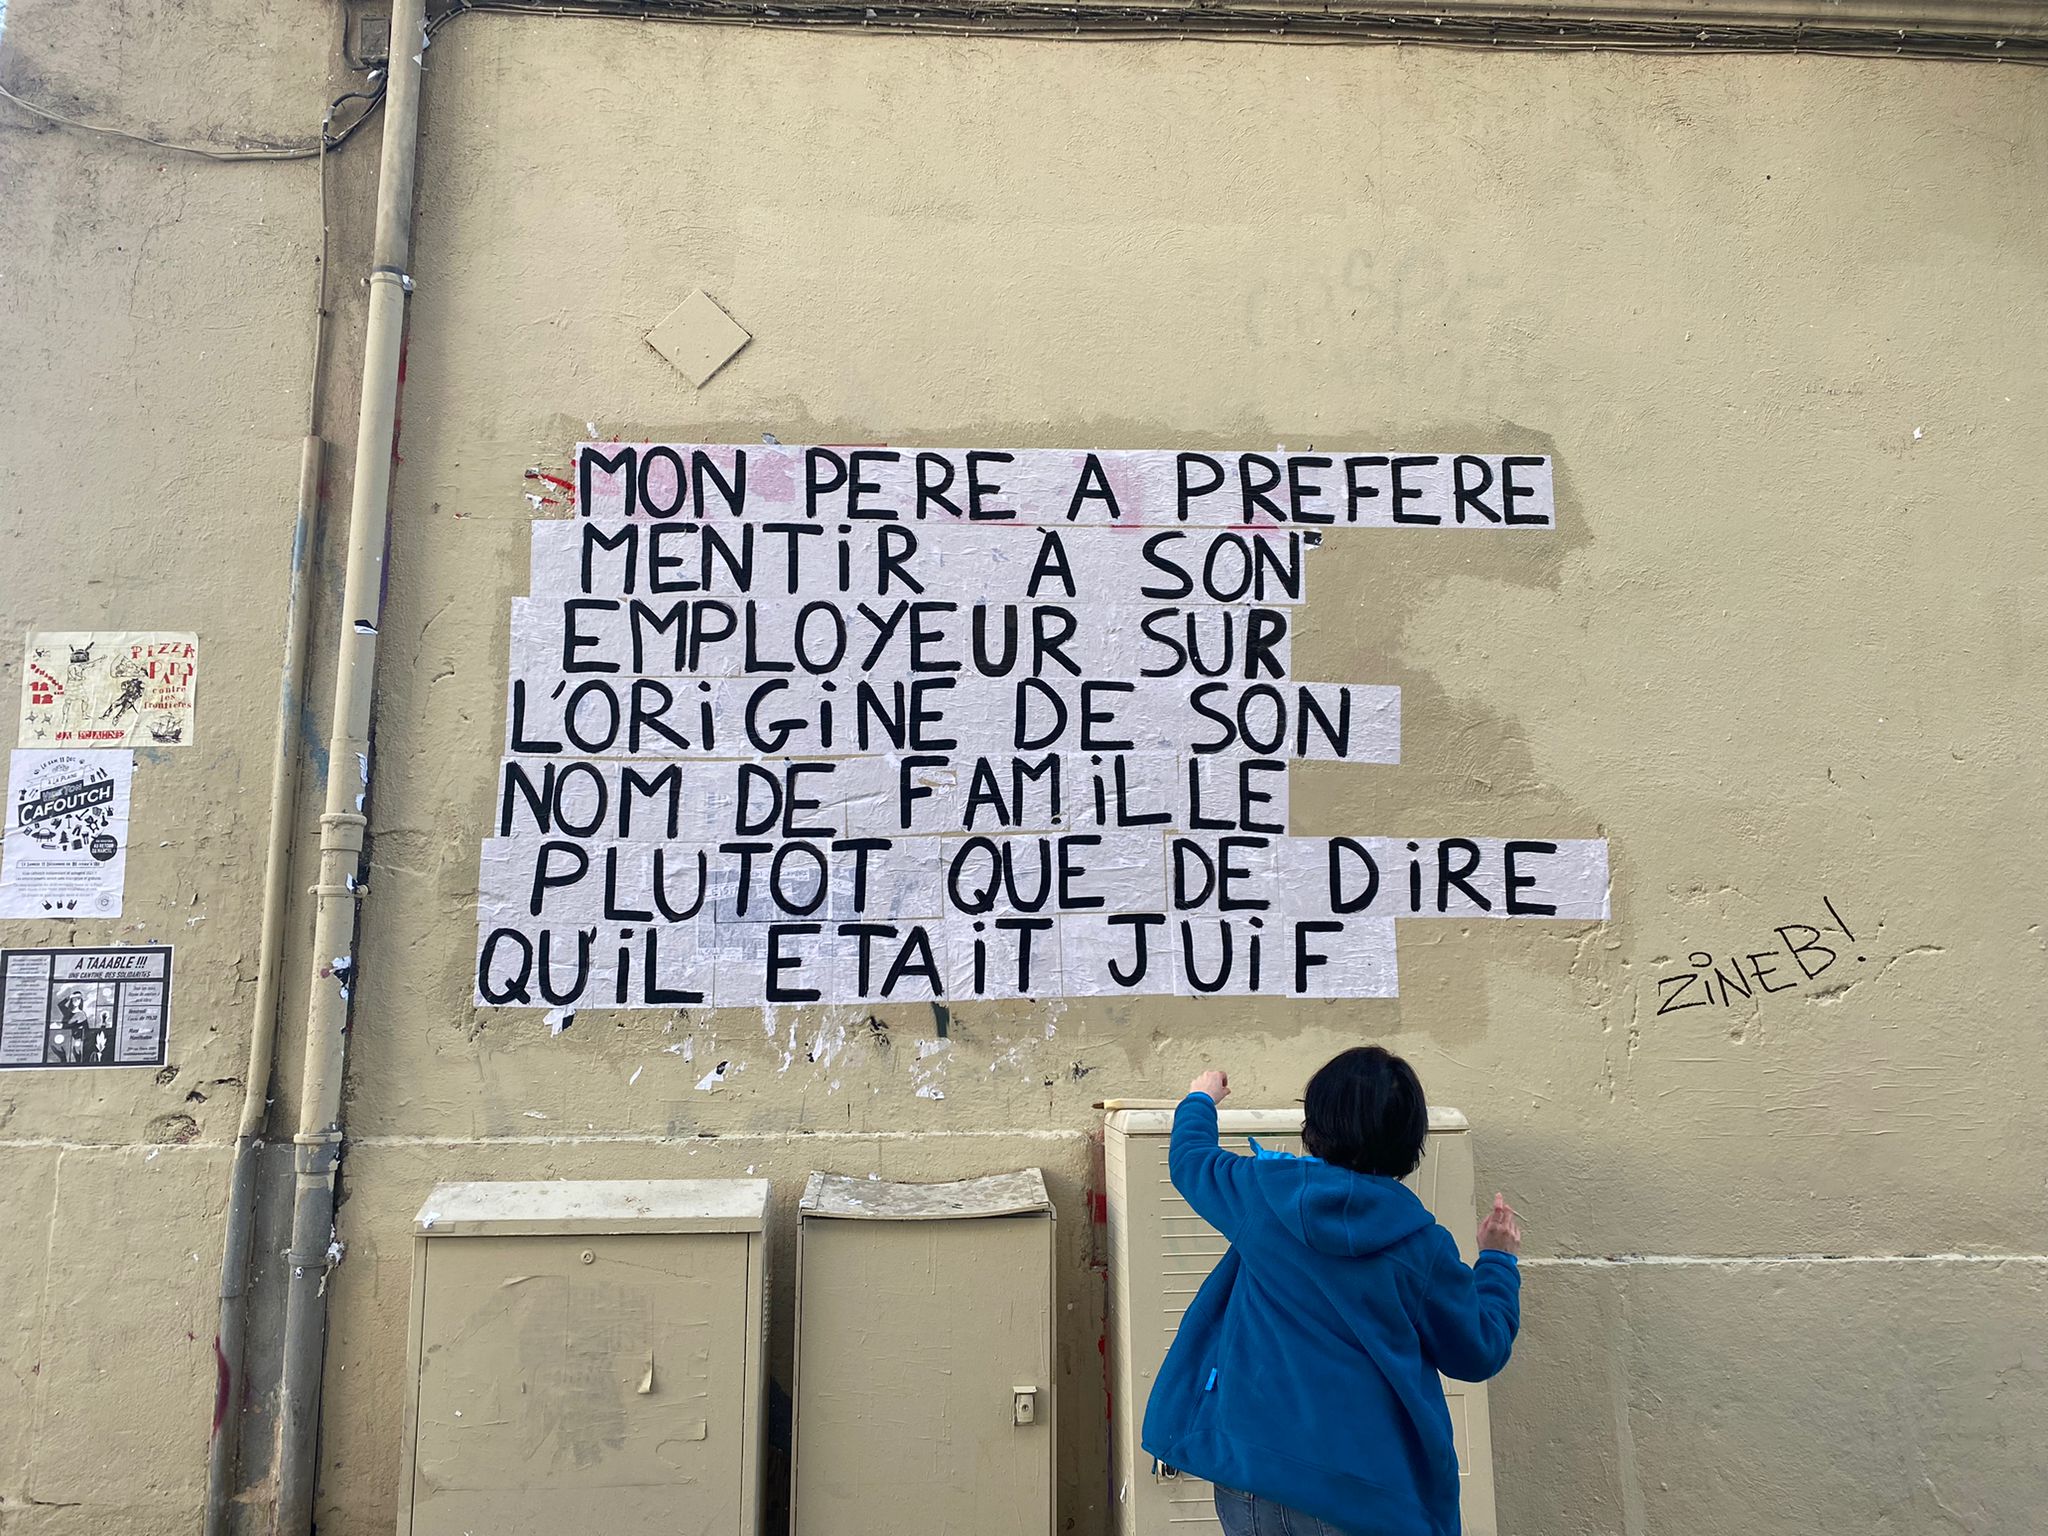 MON PERE A PREFERE
MENTIR À SON
EMPLOYEUR SUR
L'ORIGINE DE SON
NOM DE FAMILLE
PLUTOT QUE DE DIRE
QU'IL ETAIT JUIF
ZINEB!
PIZZA
PARTY
contre
les
frontières
12
12
LE SAM 11 DEC
À LA PLAINE
VIDE TON
CAFOUTCH
A TAAABLE !!!
UNE CANTINE DES SOLIDARITÉS